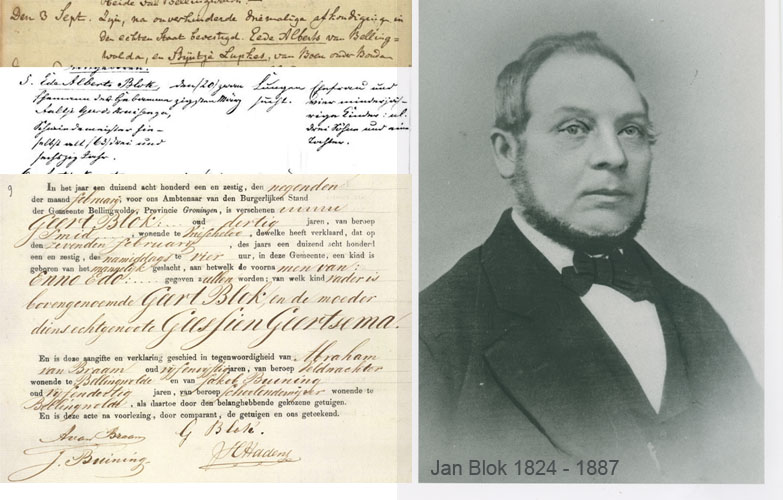 Heide van Bellingwolde.
Den 3 Sept. Zijn, na onverhinderde driemalige afkondiging in
den echten Staat bevestigd. Eede Alberts van Belling-
wolda, en Stijntje Lupkes, van Boen onder Bonda
5. Ede Alberts Blok, den (20) zwan Lungen Ehefrau und
Ehemann des zigsten März sucht. vier minderjäh-
rige Kinder:
Schmiedemeister hie- drei Söhne und eine
selbst alt (63) drei und Tochter.
sechszig Jahr.
9
In het jaar een duizend acht honderd een en zestig, den negenden
der maand februarij, voor ons Ambtenaar van den Burgerlijken Stand
der Gemeente Bellingwolde, Provincie Groningen, is verschenen
Geert Blok: oud dertig jaren, van beroep
Smid, wonende te Vriescheloo, dewelke heeft verklaard, dat op
den zevenden februarij, des jaars een duizend acht honderd
een en zestig, des namiddags te vier uur, in deze Gemeente, een kind is
geboren van het mannelijk geslacht, aan hetwelk de voornamen van:
Enno Edo: gegeven zullen worden; van welk kind vader is
bovengenoemde Geert Blok en de moeder
diens echtgenoote Geessien Geertsema.
En is deze aangifte en verklaring geschied in tegenwoordigheid van Abraham
van Braam oud vijfenvijftig jaren, van beroep veldwachter
wonende te Bellingwolde en van Jakob Buining
oud vijfendertig jaren, van beroep wonende te
Bellingwolde, als daartoe door den belanghebbende gekozene getuigen.
En is deze acte na voorlezing, door comparant, de getuigen en ons geteekend.
A van Braam G Blok.
J. Buining
Jan Blok 1824 - 1887